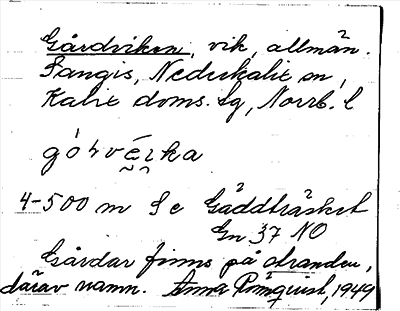 Gårdviken, vik, allmän.
Sangis, Nederkalix sn,
Kalix doms. lg, Norrb. l
4-500 m S e Gäddträsket
Gn 37 NO
Gårdar finns på stranden,
därav namn. Anna Römquist, 1949